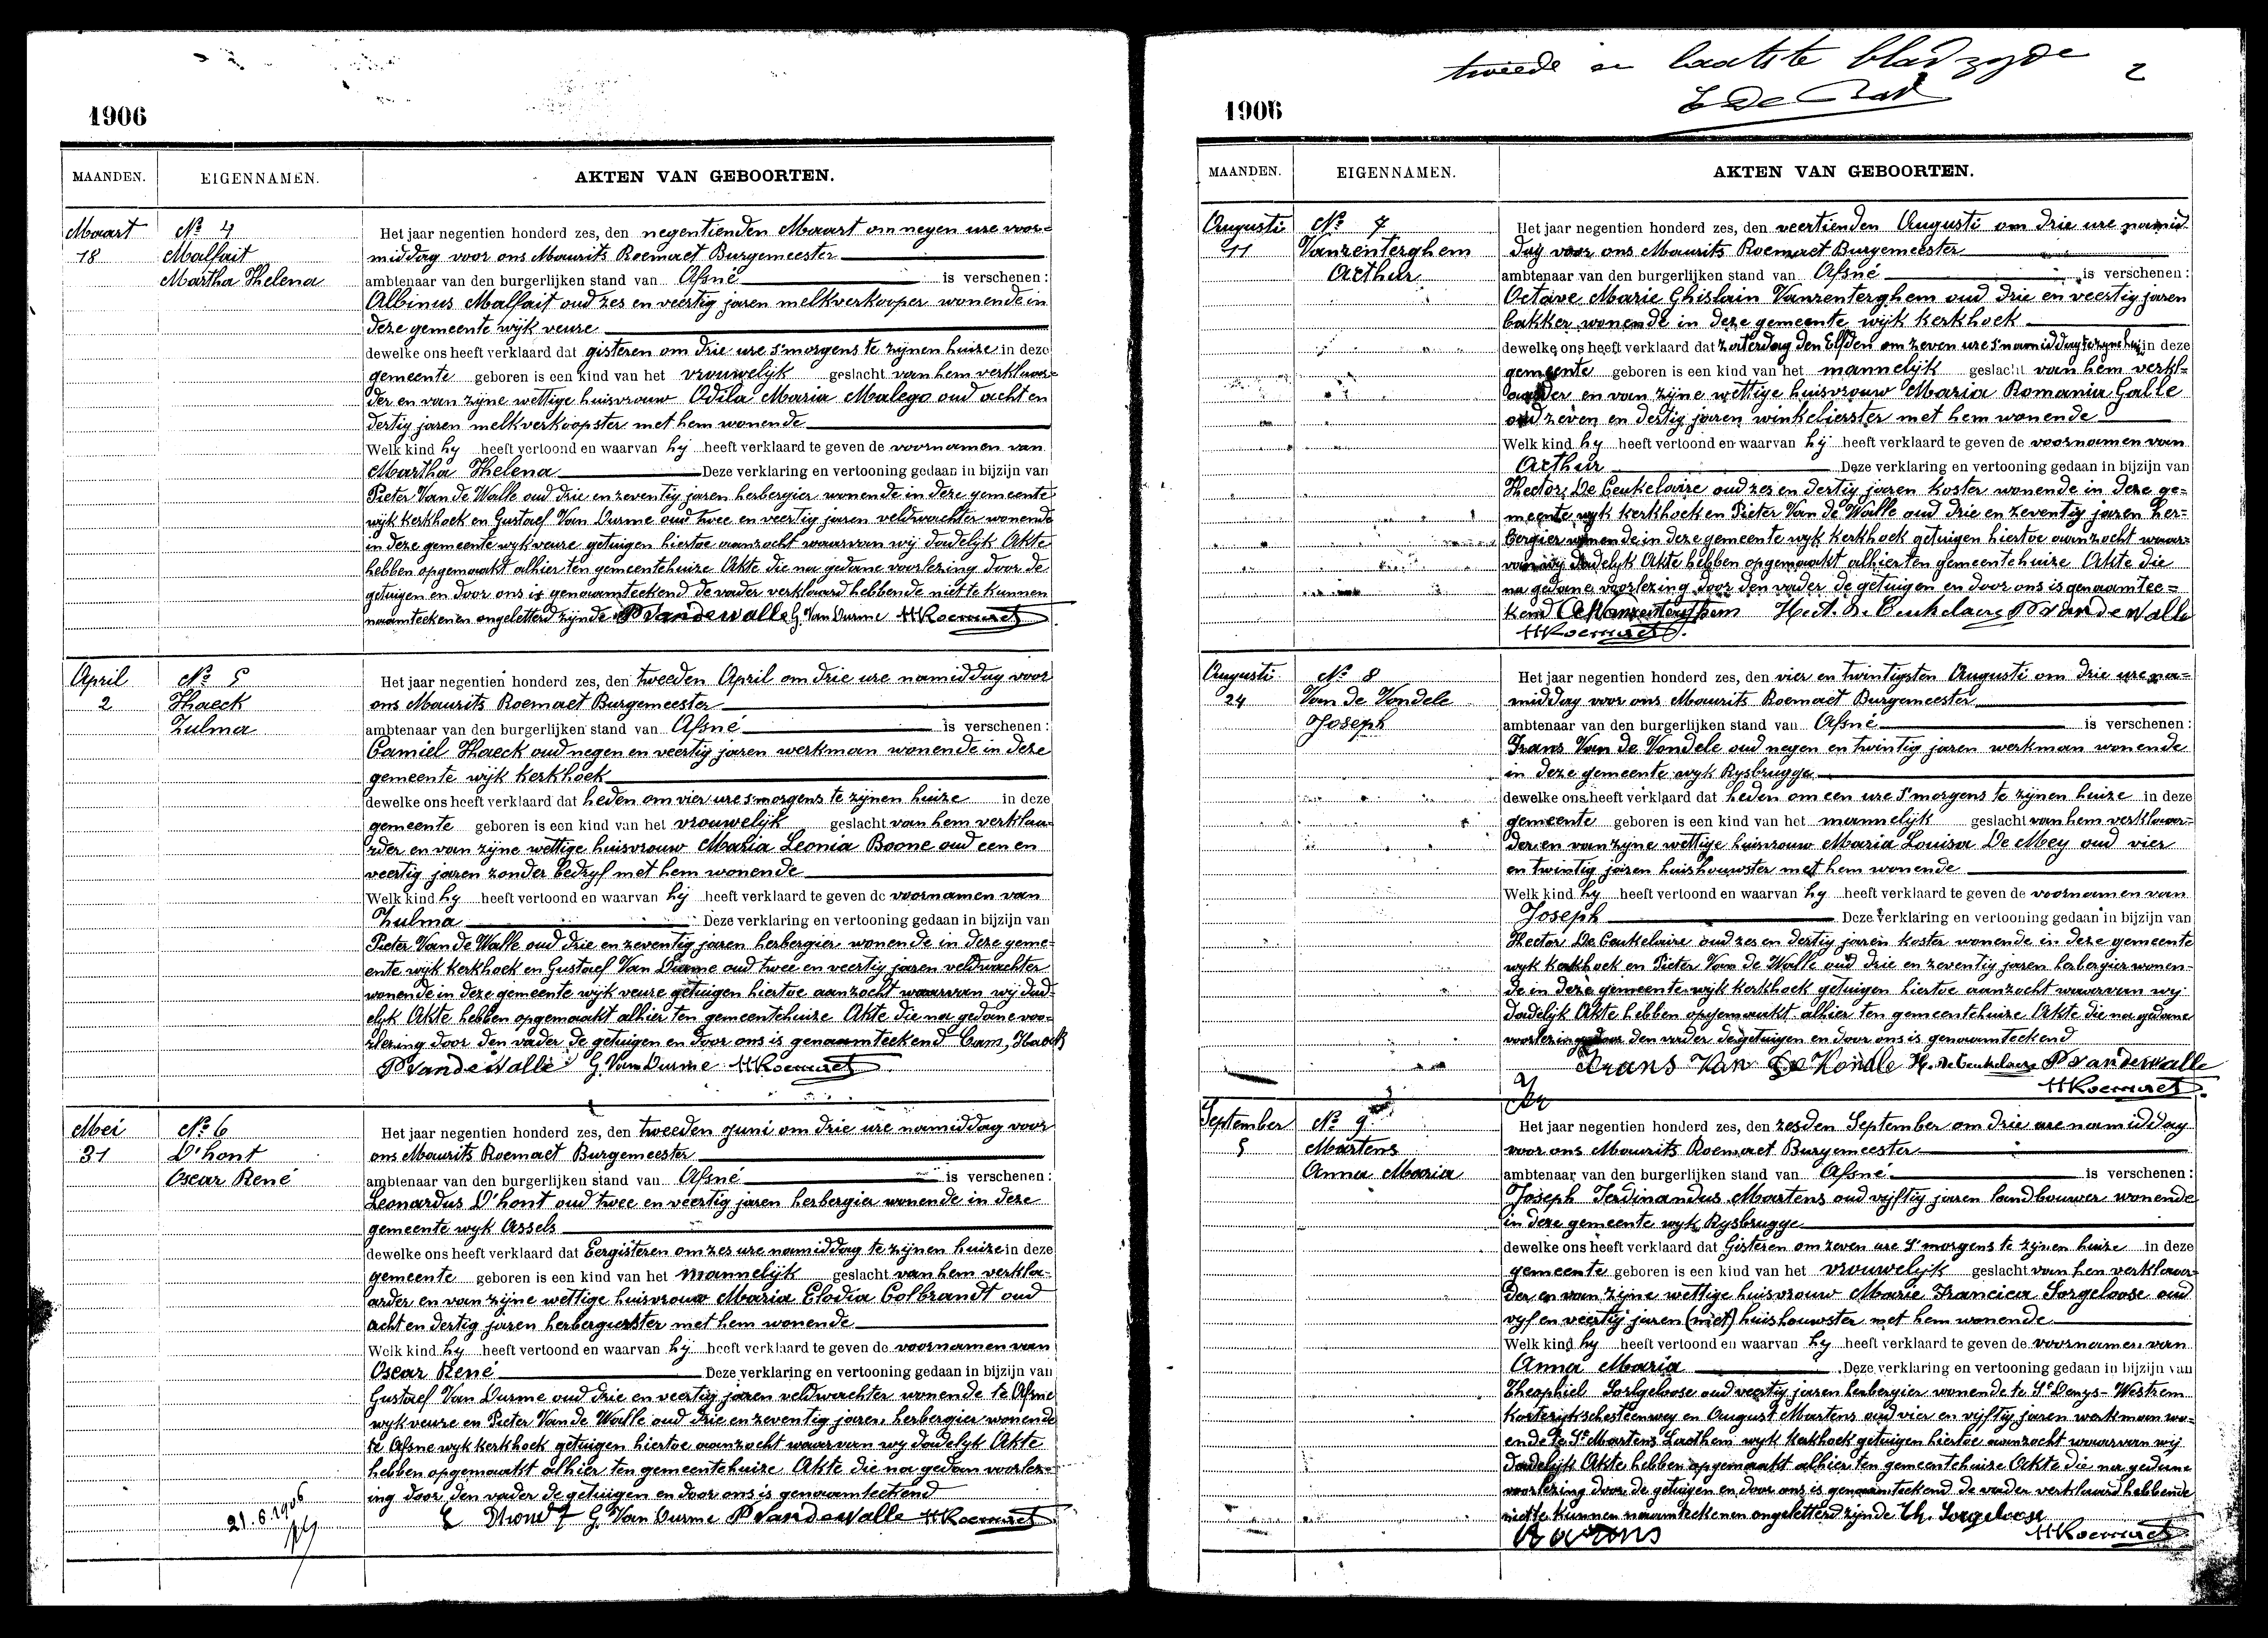 1906
MAANDEN. EIGENNAMEN. AKTEN VAN GEBOORTEN.
Maart
18
No 4
Malfait
Martha Helena
Het jaar negentien honderd zes, den negentienden Maart om negen ure voor-
middag voor ons Maurits Roemaet Burgemeester
ambtenaar van den burgerlijken stand van Afsné is verschenen:
Albinus Malfait oud zes en veertig jaren melkverkooper wonende in
deze gemeente wijk veure
dewelke ons heeft verklaard dat gisteren om drie ure s'morgens te zijnen huize in deze
gemeente geboren is een kind van het vrouwelijk geslacht van hem verklaar-
der en van zijne wettige huisvrouw Odila Maria Malego oud acht en
dertig jaren melkverkoopster met hem wonende
Welk kind hy heeft vertoond en waarvan hij heeft verklaard te geven de voornamen van
Martha Helena Deze verklaring en vertooning gedaan in bijzijn van
Pieter Van de Walle oud drie en zeventig jaren herbergier wonende in deze gemeente
wijk kerkhoek en Gustaef Van Durme oud twee en veertig jaren veldwachter wonende
in deze gemeente wyk veure getuigen hiertoe aanzocht waarvan wij dadelijk Akte
hebben opgemaakt alhier ten gemeentehuize Akte die na gedane voorlezing door de
getuigen en door ons is genaamteekend de vader verklaard hebbende niet te kunnen
naamteekenen ongeletterd zijnde P Vandewalle G. Van Durme M Roemaet
April
2
No 5
Haeck
Zulma
Het jaar negentien honderd zes, den tweeden April om drie ure namiddag voor
ons Maurits Roemaet Burgemeester
ambtenaar van den burgerlijken stand van Afsné is verschenen:
Camiel Haeck oud negen en veertig jaren werkman wonende in deze
gemeente wijk kerkhoek
dewelke ons heeft verklaard dat heden om vier ure smorgens te zijnen huize in deze
gemeente geboren is een kind van het vrouwelijk geslacht van hem verklaa-
rder en van zijne wettige huisvrouw Maria Leonia Boone oud een en
veertig jaren zonder bedryf met hem wonende
Welk kind hy heeft vertoond en waarvan hij heeft verklaard te geven de voornamen van
Zulma Deze verklaring en vertooning gedaan in bijzijn van
Pieter Van de Walle oud drie en zeventig jaren herbergier wonende in deze geme-
ente wijk kerkhoek en Gustaef Van Durme oud twee en veertig jaren veldwachter
wonende in deze gemeente wijk veure getuigen hiertoe aanzocht waarvan wij dad-
elyk Akte hebben opgemaakt alhier ten gemeentehuize Akte die na gedane voo-
rlezing door den vader de getuigen en door ons is genaamteekend Cam, Haeck
P Vandewalle G. Van Durme M Roemaet
Mei
31
No 6
D'hont
Oscar René
Het jaar negentien honderd zes, den tweeden juni om drie ure namiddag voor
ons Maurits Roemaet Burgemeester
ambtenaar van den burgerlijken stand van Afsné is verschenen:
Leonardus D'hont oud twee en veertig jaren herbergier wonende in deze
gemeente wyk Assels
dewelke ons heeft verklaard dat Eergisteren om zes ure namiddag te zijnen huize in deze
gemeente geboren is een kind van het mannelijk geslacht van hem verkla-
arder en van zijne wettige huisvrouw Maria Elodia Colbrandt oud
acht en dertig jaren herbergierster met hem wonende
Welk kind hy heeft vertoond en waarvan hij heeft verklaard te geven de voornamen van
Oscar René Deze verklaring en vertooning gedaan in bijzijn van
Gustaef Van Durme oud drie en veertig jaren veldwachter wonende te Afsne
wyk veure en Pieter Van de Walle oud drie en zeventig jaren herbergier wonende
te Afsne wyk kerkhoek getuigen hiertoe aanzocht waarvan wy dadelyk Akte
hebben opgemaakt alhier ten gemeentehuize Akte die na gedam voorlez-
ing door den vader de getuigen en door ons is genaamteekend
G. Van Durme P Vandewalle M Roemaet
21.6.1906
tweede en laatste bladzyde
2
1906
MAANDEN. EIGENNAMEN. AKTEN VAN GEBOORTEN.
Augusti
11
No 7
Vanzenterghem
Arthur
Het jaar negentien honderd zes, den veertienden Augusti om drie ure namid-
dag voor ons Maurits Roemaet Burgemeester
ambtenaar van den burgerlijken stand van Afsné is verschenen:
Octave Marie Ghislain Vanzenterghem oud drie en veertig jaren
bakker wonende in deze gemeente wijk kerkhoek
dewelke ons heeft verklaard dat zaterdag den Elfden om zeven ure s'namiddag te zyne huize in deze
gemeente geboren is een kind van het mannelijk geslacht van hem verkl-
aarder en van zijne wettige huisvrouw Maria Romania Galle
oud zeven en dertig jaren winkelierster met hem wonende
Welk kind hy heeft vertoond en waarvan hij heeft verklaard te geven de voornamen van
Arthur Deze verklaring en vertooning gedaan in bijzijn van
Hector De Ceukelaire oud zes en dertig jaren koster wonende in deze ge-
meente wyk kerkhoek en Pieter Van de Walle oud drie en zeventig jaren her-
bergier wonende in deze gemeente wyk kerkhoek getuigen hiertoe aanzocht waar-
van wij dadelyk Akte hebben opgemaakt alhier ten gemeentehuize Akte die
na gedane voorlezing door den vader de getuigen en door ons is genaamtee-
kend O Vanzenterghem Hect. De Ceukelaere P Vandewalle
M Roemaet.
Augusti
24
No 8
Van de Vondele
Joseph
Het jaar negentien honderd zes, den vier en twintigsten Augusti om drie ure na-
middag voor ons Maurits Roemaet Burgemeester
ambtenaar van den burgerlijken stand van Afsné is verschenen:
Frans Van de Vondele oud negen en twintig jaren werkman wonende
in deze gemeente wyk Rysbrugge
dewelke ons heeft verklaard dat heden om een ure s'morgens te zijnen huize in deze
gemeente geboren is een kind van het mannelijk geslacht van hem verklaar-
der en van zyne wettige huisvrouw Maria Louisa De Mey oud vier
en twintig jaren huishouwster met hem wonende
Welk kind hy heeft vertoond en waarvan hy heeft verklaard te geven de voornamen van
Joseph Deze verklaring en vertooning gedaan in bijzijn van
Hector De Ceukelaire oud zes en dertig jaren koster wonende in deze gemeente
wyk kerkhoek en Pieter Van de Walle oud drie en zeventig jaren herbergier wonen-
de in deze gemeente wijk kerkhoek getuigen hiertoe aanzocht waarvan wy
dadelijk Akte hebben opgemaakt alhier ten gemeentehuize Akte die na gedane
voorlezing door den vader de getuigen en door ons is genaamteekend
Frans Van De Vondle H. De Ceukelaere P Vandewalle
M Roemaet.
September
5
No 9
Martens
Anna Maria
Het jaar negentien honderd zes, den zesden September om drie ure namiddag
voor ons Maurits Roemaet Burgemeester
ambtenaar van den burgerlijken stand van Afsné is verschenen:
Joseph Ferdinandus Martens oud vijftig jaren landbouwer wonende
in deze gemeente wyk Rysbrugge
dewelke ons heeft verklaard dat Gisteren om zeven ure s'morgens te zijnen huize in deze
gemeente geboren is een kind van het vrouwelijk geslacht van hen verklaar-
der en van zijne wettige huisvrouw Marie Francica Sorgeloose oud
vyf en veertig jaren (niet) huishouwster met hem wonende
Welk kind hy heeft vertoond en waarvan hy heeft verklaard te geven de voornamen van
Anna Maria Deze verklaring en vertooning gedaan in bijzijn van
Theophiel Sorgeloose oud veertig jaren herbergier wonende te St Denys-Westrem
kortrijkschesteenwey en August Martens oud vier en vijftig jaren werkman wo-
ende te St Martens Laathem wyk kerkhoek getuigen hiertoe aanzocht waarvan wij
dadelijk Akte hebben opgemaakt alhier ten gemeentehuize Akte die na gedane
voorlezing door de getuigen en door ons is genaamteekend de vader verklaard hebbende
niet te kunnen naamteekenen ongeletterd zijnde Th. Sorgeloose
M Roemaet